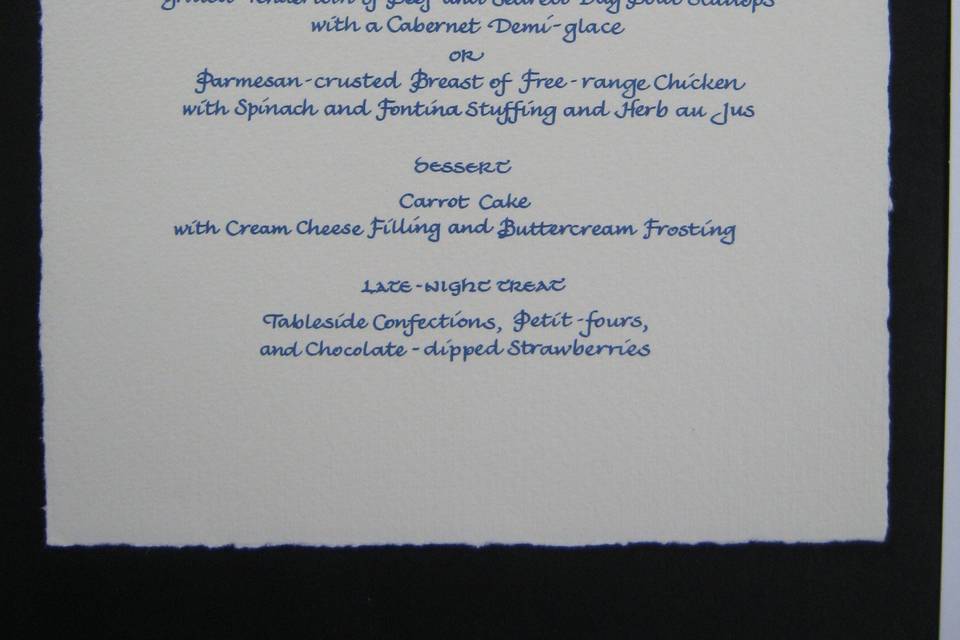 Tenderloin of Beef and Seared Day Boat Scallops
with a Cabernet Demi-glace
OR
Parmesan-crusted Breast of Free-range Chicken
with Spinach and Fontina Stuffing and Herb au Jus
DESSERT
Carrot Cake
with Cream Cheese Filling and Buttercream Frosting
LATE-NIGHT TREAT
Tableside Confections, Petit-fours,
and Chocolate-dipped Strawberries